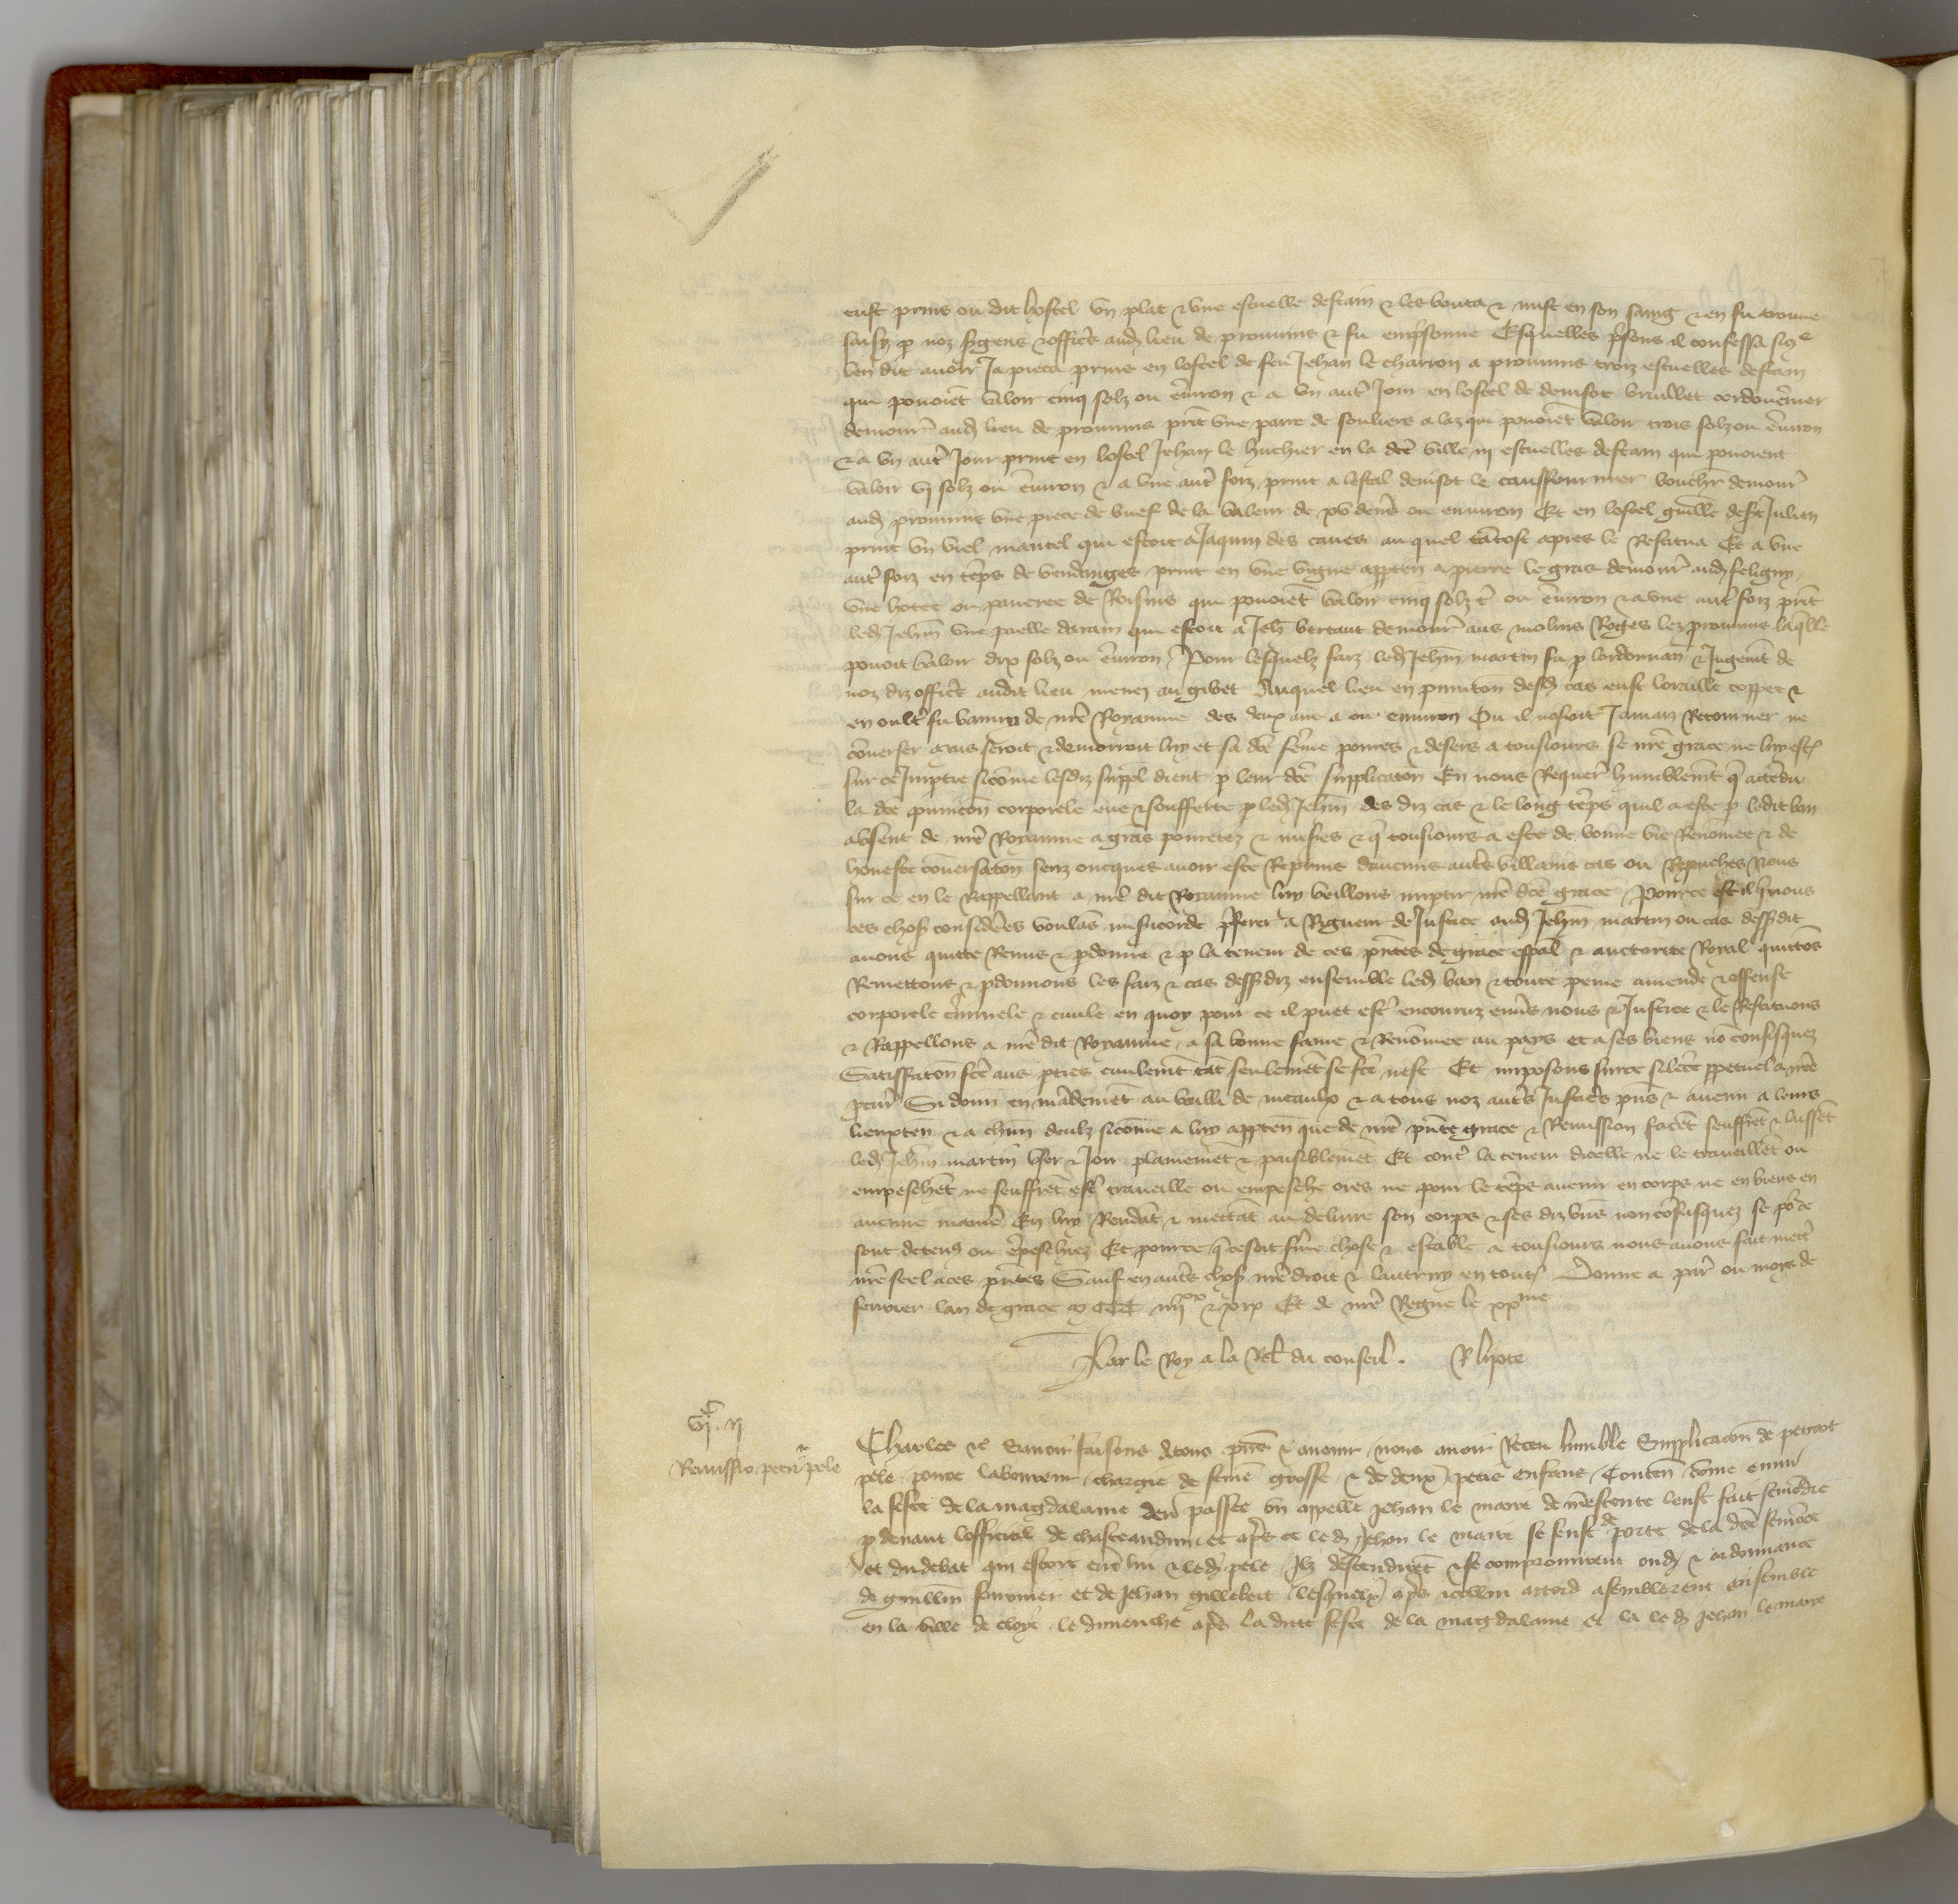 eust prins ou dit hostel un plat & une escuelle destain & les bouta & mist en son saing & en fu trouve
saisy p noz sgens & offic's aud lieu de prouvins & fu emprsonne Esquelles prsons il confessa si q
len dit avoir Ja pieca prins en lostel de feu Jehan le charron a prouvins trois escuelles destain
qui povoiet valoir cinq solz ou eviron & a un aut' Jour en lostel de denisot cordouenier
demour' aud lieu de prouvins prit une paire de souliers a laz qui povoiet valoir trois solz ou eviron
& a un aut' Jour print en lostel Jehan le huchier en la dce ville iij escuelles destain qui povoient
valoir vj solz ou eviron & a une aut' foiz print a lestal denisot le bouchr demour'
aud prouvins une piece de buef de la valeur de xv den's ou environ Et en lostel guille de st Julien
print un viel mantel qui estoit a Jaquin des caves au quel tatost apres le Restitua Et a une
aut' foiz en teps de vendanges print en une vigne apparten a pierre le gras demour' aud
une hotee ou paneree de Roisins qui povoiet valoir cinq solz t' ou eviron & a une aut' foiz prit
led Jehin une paelle darain qui estoit a Jeh bertaut demour' aus molins Roges lez prouvins laqlle
povoit valoir dix solz ou eviron Pour lesquelz faiz led Jehin martin fu p lordonnan & Jugemt de
noz diz offic's audit lieu menez au gibet Auquel lieu en punicton desd cas eust loreille coppee &
en oult' fu banny de nre Royaume des deux ans a ou environ Ou il nosoit Jamaiz Retourner ne
coverser & demorroit luy et sa dce feme povres & desers a tousiours se nre grace ne luy est
sur ce Imptie sicome lesdiz suppl dient p leur dce supplicaton En nous Requer' humblemt q actedu
la dce punicion corporele eue & soufferte p led Jehin des diz cas & le long teps quil a este p ledit ban
absent de nre Royaume a grans povretez & mises & q tousiours a este de bonne vie Renomee & de
honeste conversaton senz oncques avoir este Reprins daucuns autes villains cas ou Reprouches Nous
sur ce en le Rappellant a nre dit Royaume luy veillons imptir nre dce grace Pource est il q nous
ces chos considerees voulas misicorde prferer a Rigueur de Justice aud Jehin martin ou cas dessdit
avons quitte Remis & pdonne & p la teneur de ces prntes de grace espal & auctorite Royal quittos
Remettons & pdonnons les faiz & cas dessdiz ensemble led ban & toute peine amende & offense
corporele criminele & civile en quoy pour ce il puet est' encouruz env's nous & Justice & le Restituons
& Rappellons a nre dit Royaume a sa bonne fame & Renomee au pays et a ses biens no confisquez
Satisffaton fce aus pties civilemt tat seulemet se fce nest Et imposons sur ce silece ppetuel a nre
pcur' Si donn en mademet au bailli de meaulx & a touz noz autes Justic's prns & avenir a leurs
lieuxten & a chun deulz sicome a luy apparten que de nre prnte grace & Remission facet seuffret & laisset
led Jehin martin user & Joir plainemet & paisiblemet Et cont' la teneur dicelle ne le travaillet ou
empeschet ne seuffret est' travaille ou empesche ores ne pour le teps avenir en corps ne en biens en
aucune manie En luy Rendat & mettat au delivre son corps & ses diz bies non cofisquez se po' ce
sont detenus ou epeschiez Et pource q ce soit ferme chose & estable a tousiours nous avons fait mett'
nre seel a ces prntes Sauf en autes chos nre droit & lautruy en tout Donne a par' ou moys de
fevrier lan de grace m ccc iiijxx & xix Et de nre Regne le xxme
Par le Roy a la Rel du conseil . R lhote
vjc. ij
Remissio petri pele
Charles &c Savoir faisons A tous prns & avenir nous avoir Receu humble Supplicacon de perrot
pele povre laboureur chargie de feme grosse & de deux petis enfans Conten come envir
la feste de la magdalaine derr passee un appelle Jehan le maire de leust fait semodre
p devant lofficial de chasteaudun et apres ce led Jehan le maire se feust de porte de la dce semoce
et du debat qui estoit ent' lui & led pele Ilz descendiret & se compromirent oud & ordonnance
de guillin fournier et de Jehan gillebert lesquelx apres icellui accord asemblerent ensemble
en la ville de cloye le dimenche apres la dicte feste de la magdalaine et la led Jehan le maire